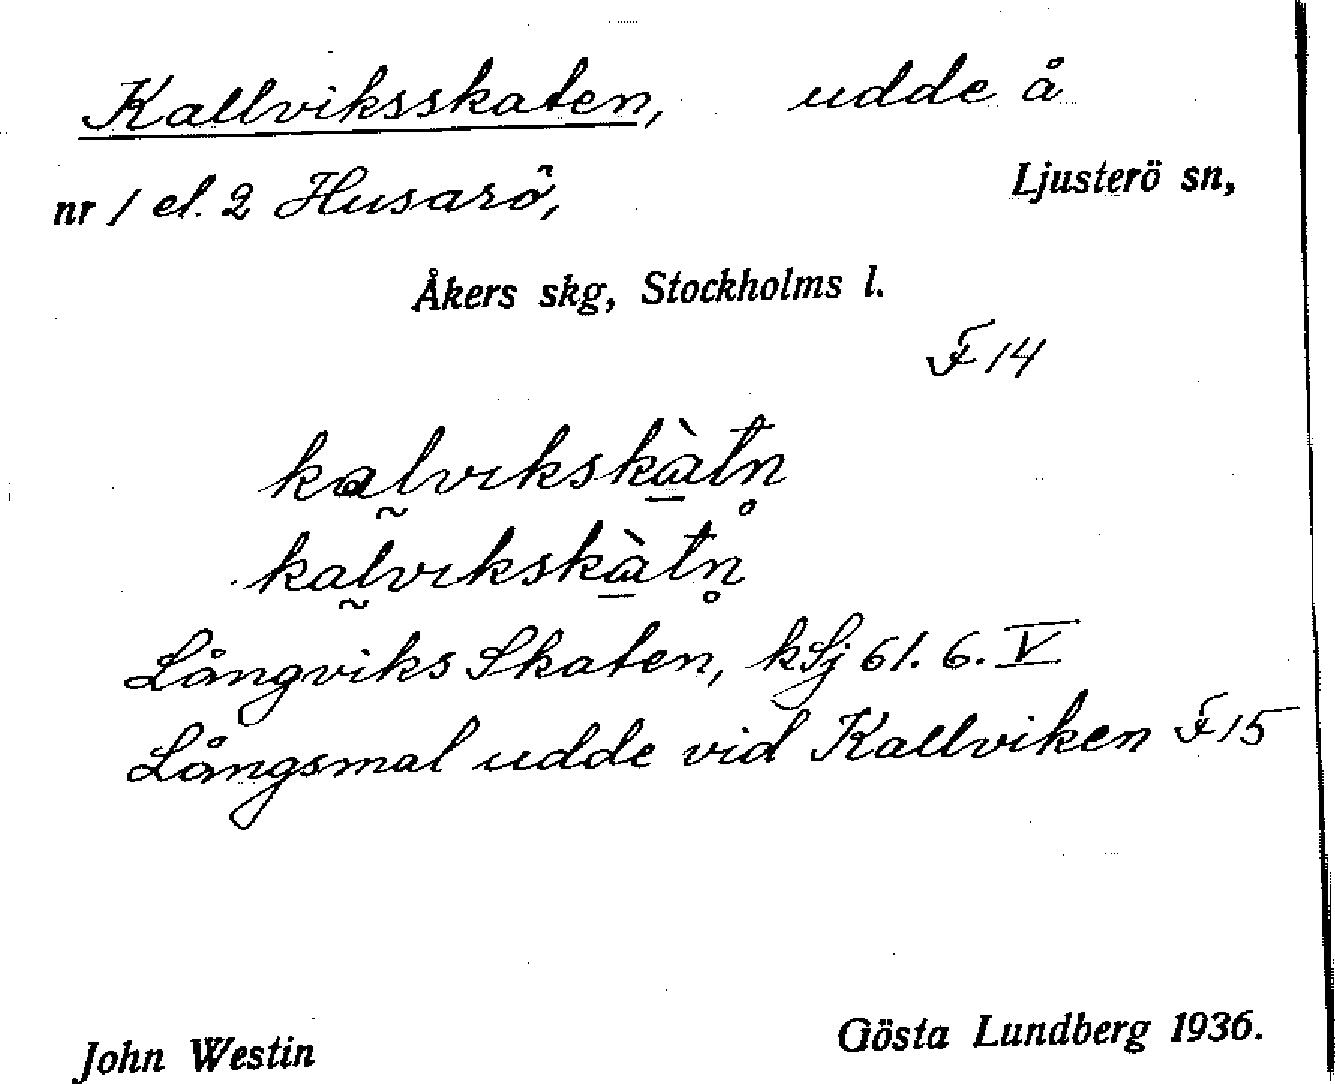 Kallviksskaten, udde å
nr 1 el. 2 Husarö, Ljusterö sn,
Åkers skg, Stockholms l.
F 14
kal̰vıkskà̱tn̥
kal̰vıkskà̱tn̥
Långviks Skaten, kSj 61. 6. V
Långsmal udde vid Kallviken F 15
John Westin Gösta Lundberg 1936.